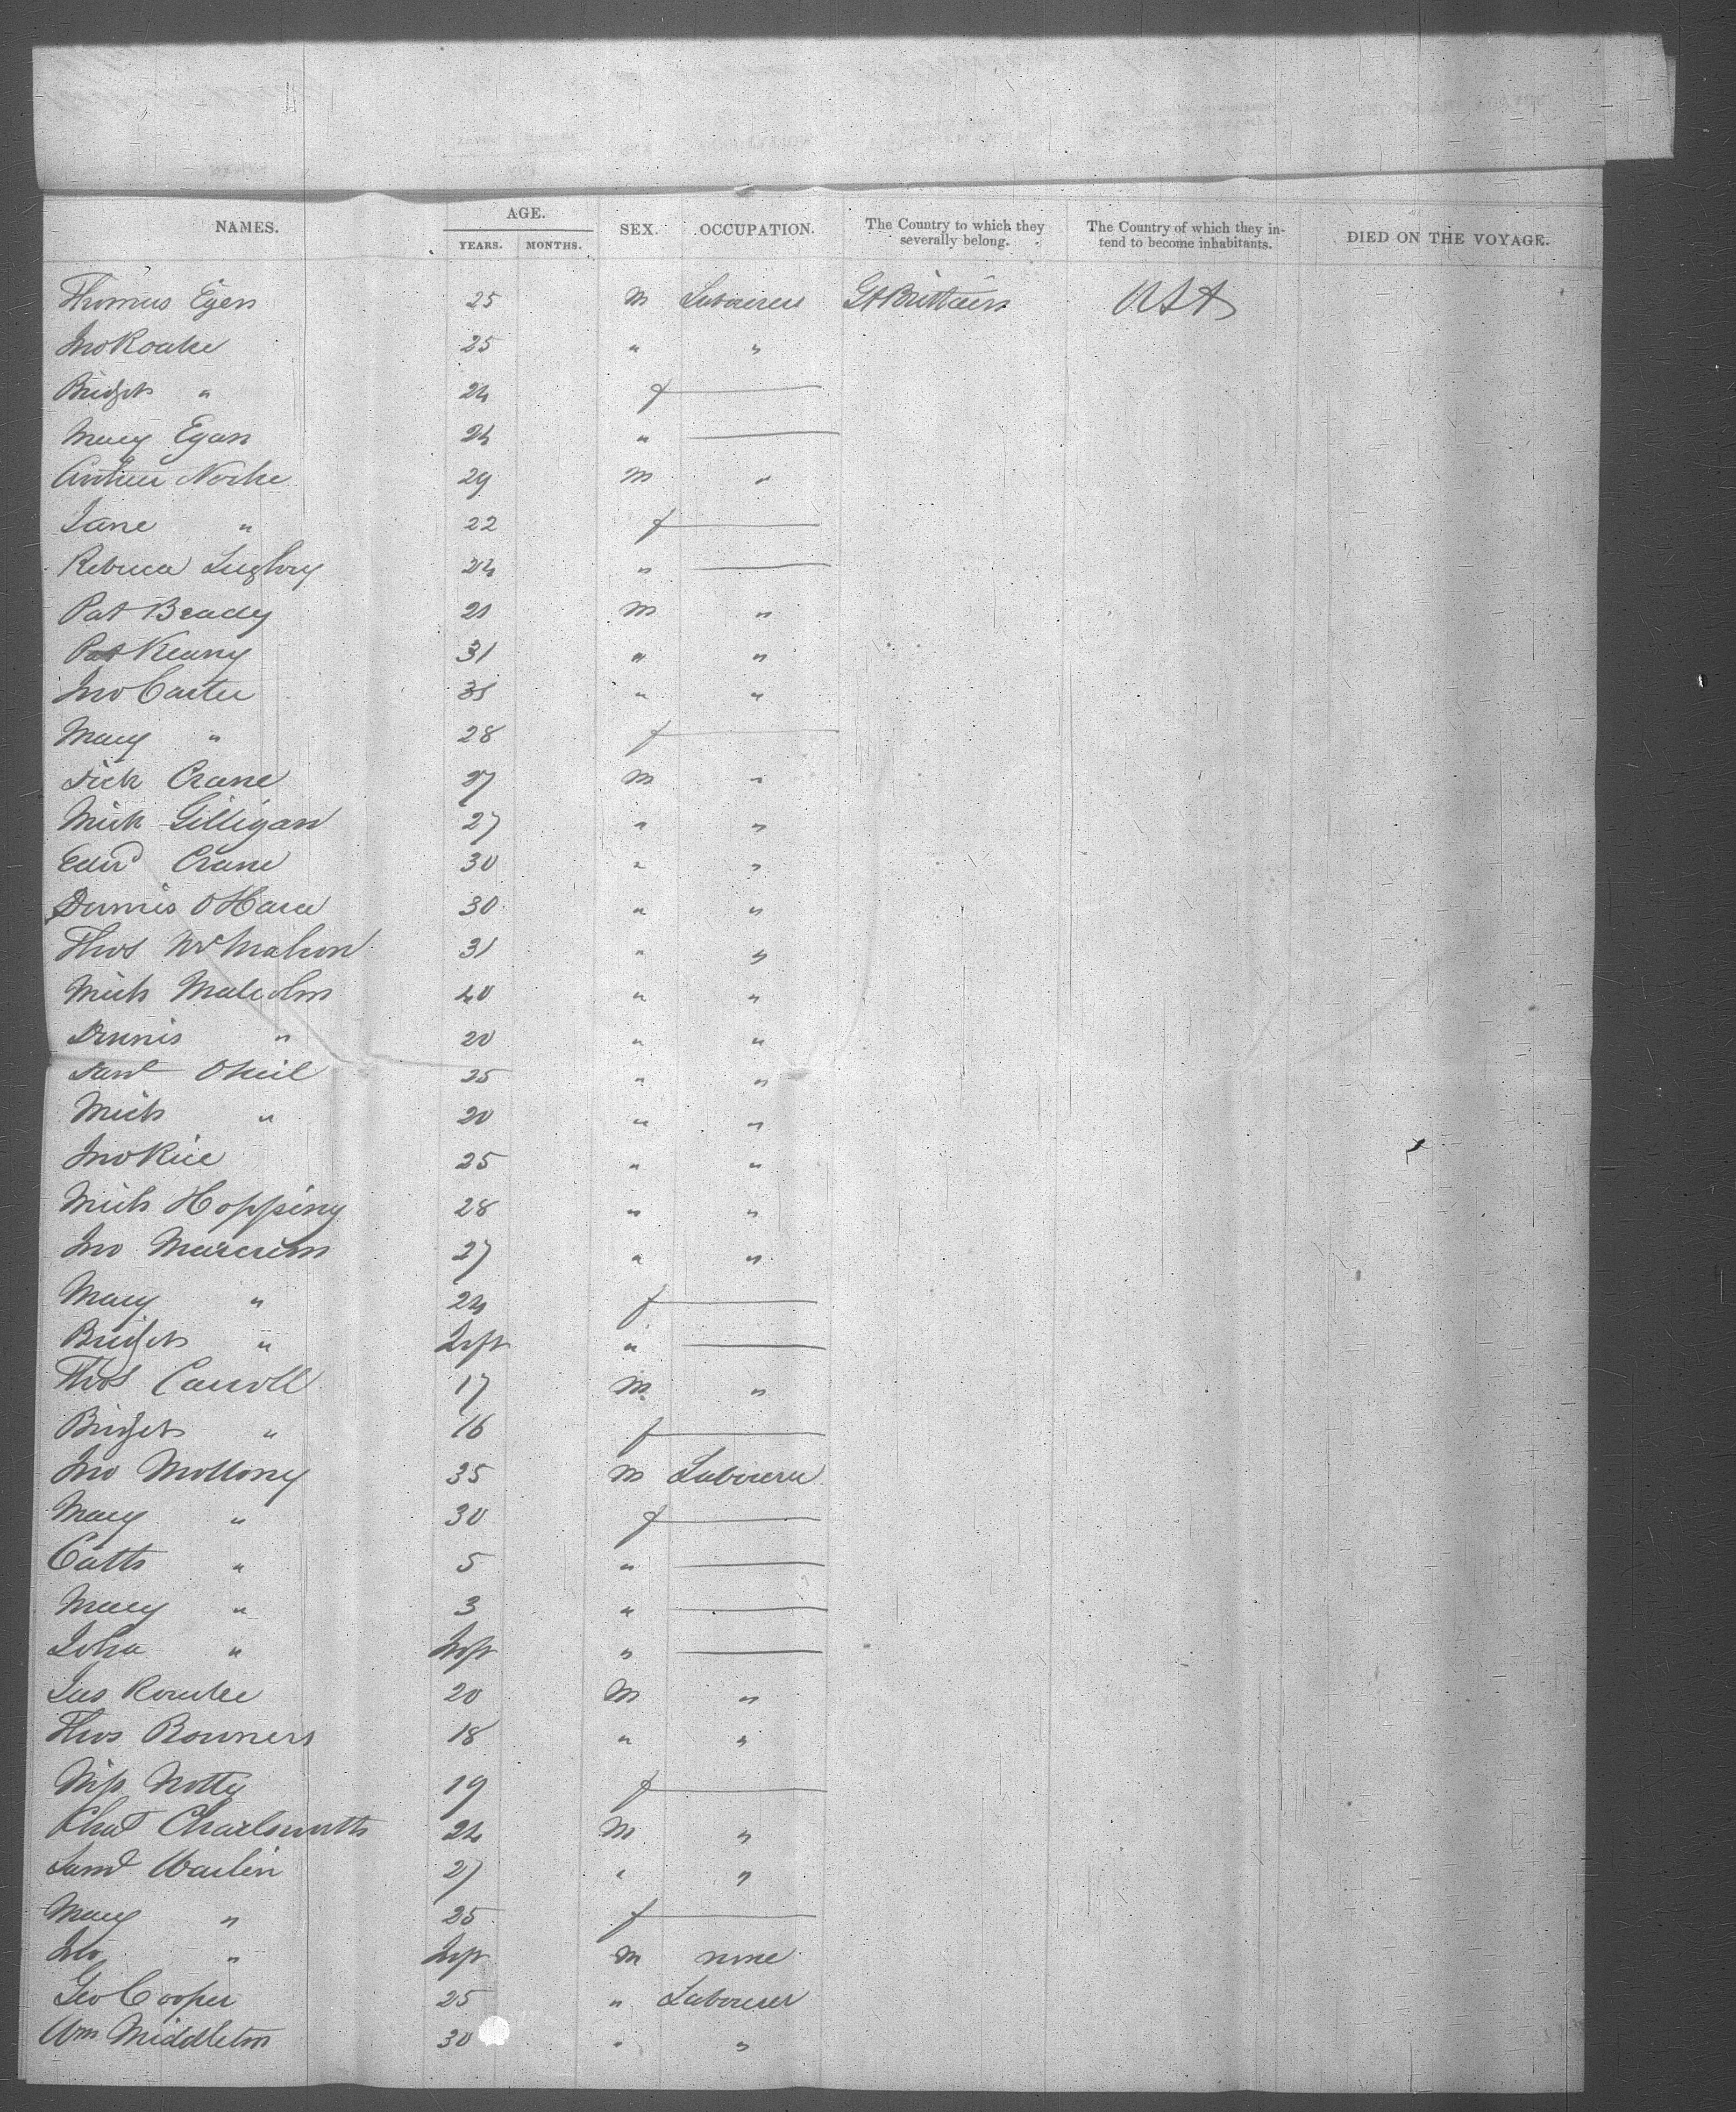 NAMES. AGE. SEX. OCCUPATION. The Country to which they severally belong. The Country of which they in- tend to become inhabitants. DIED ON THE VOYAGE.
YEARS. MONTHS.
Thomas Egen 25 M Labourer Gt Brittain USA
Jno Roake 25 " "
Bridget " 24 f
Mary Egan 24 "
29 M "
Jane " 22 f
Rebecca 24 "
Pat Brady 21 M "
Pat Keany 31 " "
Jno Carter 35 " "
Mary " 28 f
Dick Crane 27 M "
Mick Gilligan 27 " "
Edwd Crane 30 " "
Dennis OHara 30 " "
Thos McMahon 31 " "
Mich Malcolm 40 " "
Dennis " 20 " "
Danl ONeil 25 " "
Mich " 20 " "
Jno Rice 25 " "
Mich Hopping 28 " "
Jno 27 " "
Mary " 24 f
Bridget " Inft "
Thos Carroll 17 M "
Bridget " 16 f
Jno Mollony 35 M Labourer
Mary " 30 f
Cath " 5 "
Mary " 3 "
" Inft "
Jas Rourke 20 M "
Thos Bowners 18 " "
Miss Notty 19 f
Chas Charlsworth 24 M "
Saml 27 " "
Mary " 25 f
Jno " Inft M none
Geo Cooper 25 " Labourer
Wm Middleton 30 " "